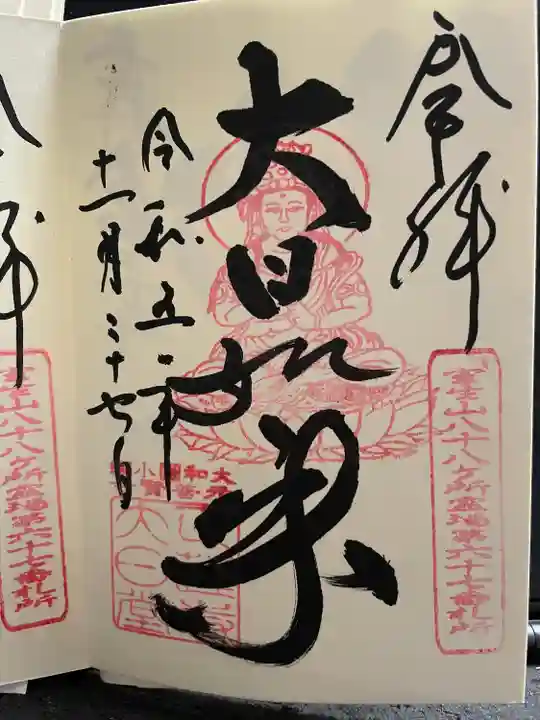 奉拝
室生山八十八ヶ所霊場第六十七番札所
大日如来
令和五年
十一月二十七日
大日堂
拝
室生山八十八ヶ所霊場第六十七番札所